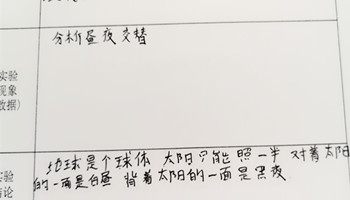 分析昼夜交替
实验
现象
数据)
地球是个球体 太阳只能照一半 对着太阳
的一面是白昼 背着太阳的一面是黑夜
实验
结论